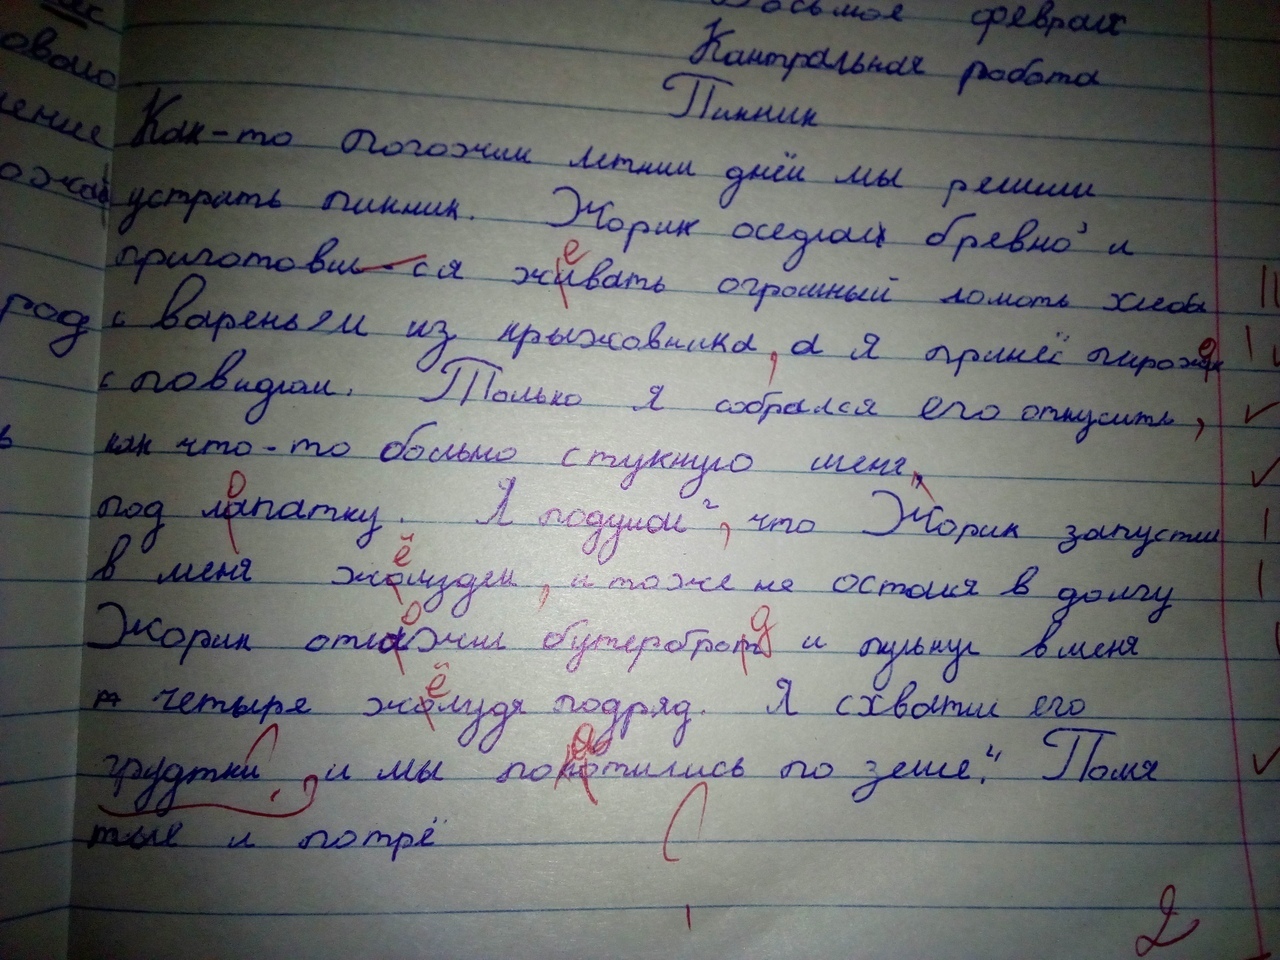 февраля
Кантральная работа
Пикник
Как-то погожим летним днём мы решили
устрать пикник. Жорик оседлал бревно³ и
приготовился живать огромный ломоть хлеба
с вареньем из крыжовника, а я принёс пирожок
с повидлом. Только я собрался его откусить,
как что-то больно стукнуло меня
под лапатку. Я подумал², что Жорик запустил
в меня жолудем, и тоже не остался в долгу
Жорик отлажил бутерброт и пульнул в меня
четыре жолудя подряд. Я схватил его
грудтки, и мы покотились по земле.⁴ Помя
тые и потрё
род
2